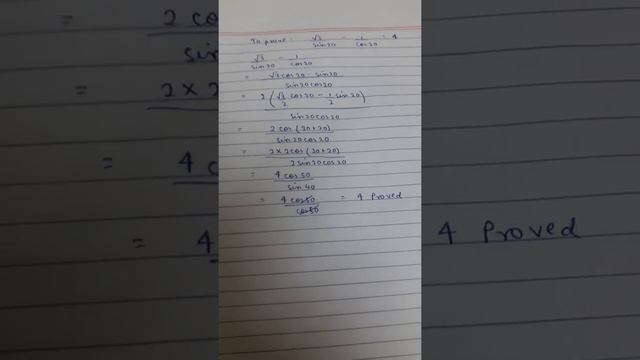 To prove : √3/sin20 - 1/cos20 = 4
√3/sin20 - 1/cos20
= √3cos20 - sin20 / sin20cos20
= 2(√3/2 cos20 - 1/2 sin20) / sin20cos20
= 2cos(30+20) / sin20cos20
= 2×2cos(30+20) / 2sin20cos20
= 4cos50 / sin40
= 4cos50 / cos50 = 4 Proved
= 2 co
sin
= 2×2
= 4
= 4
4 Proved